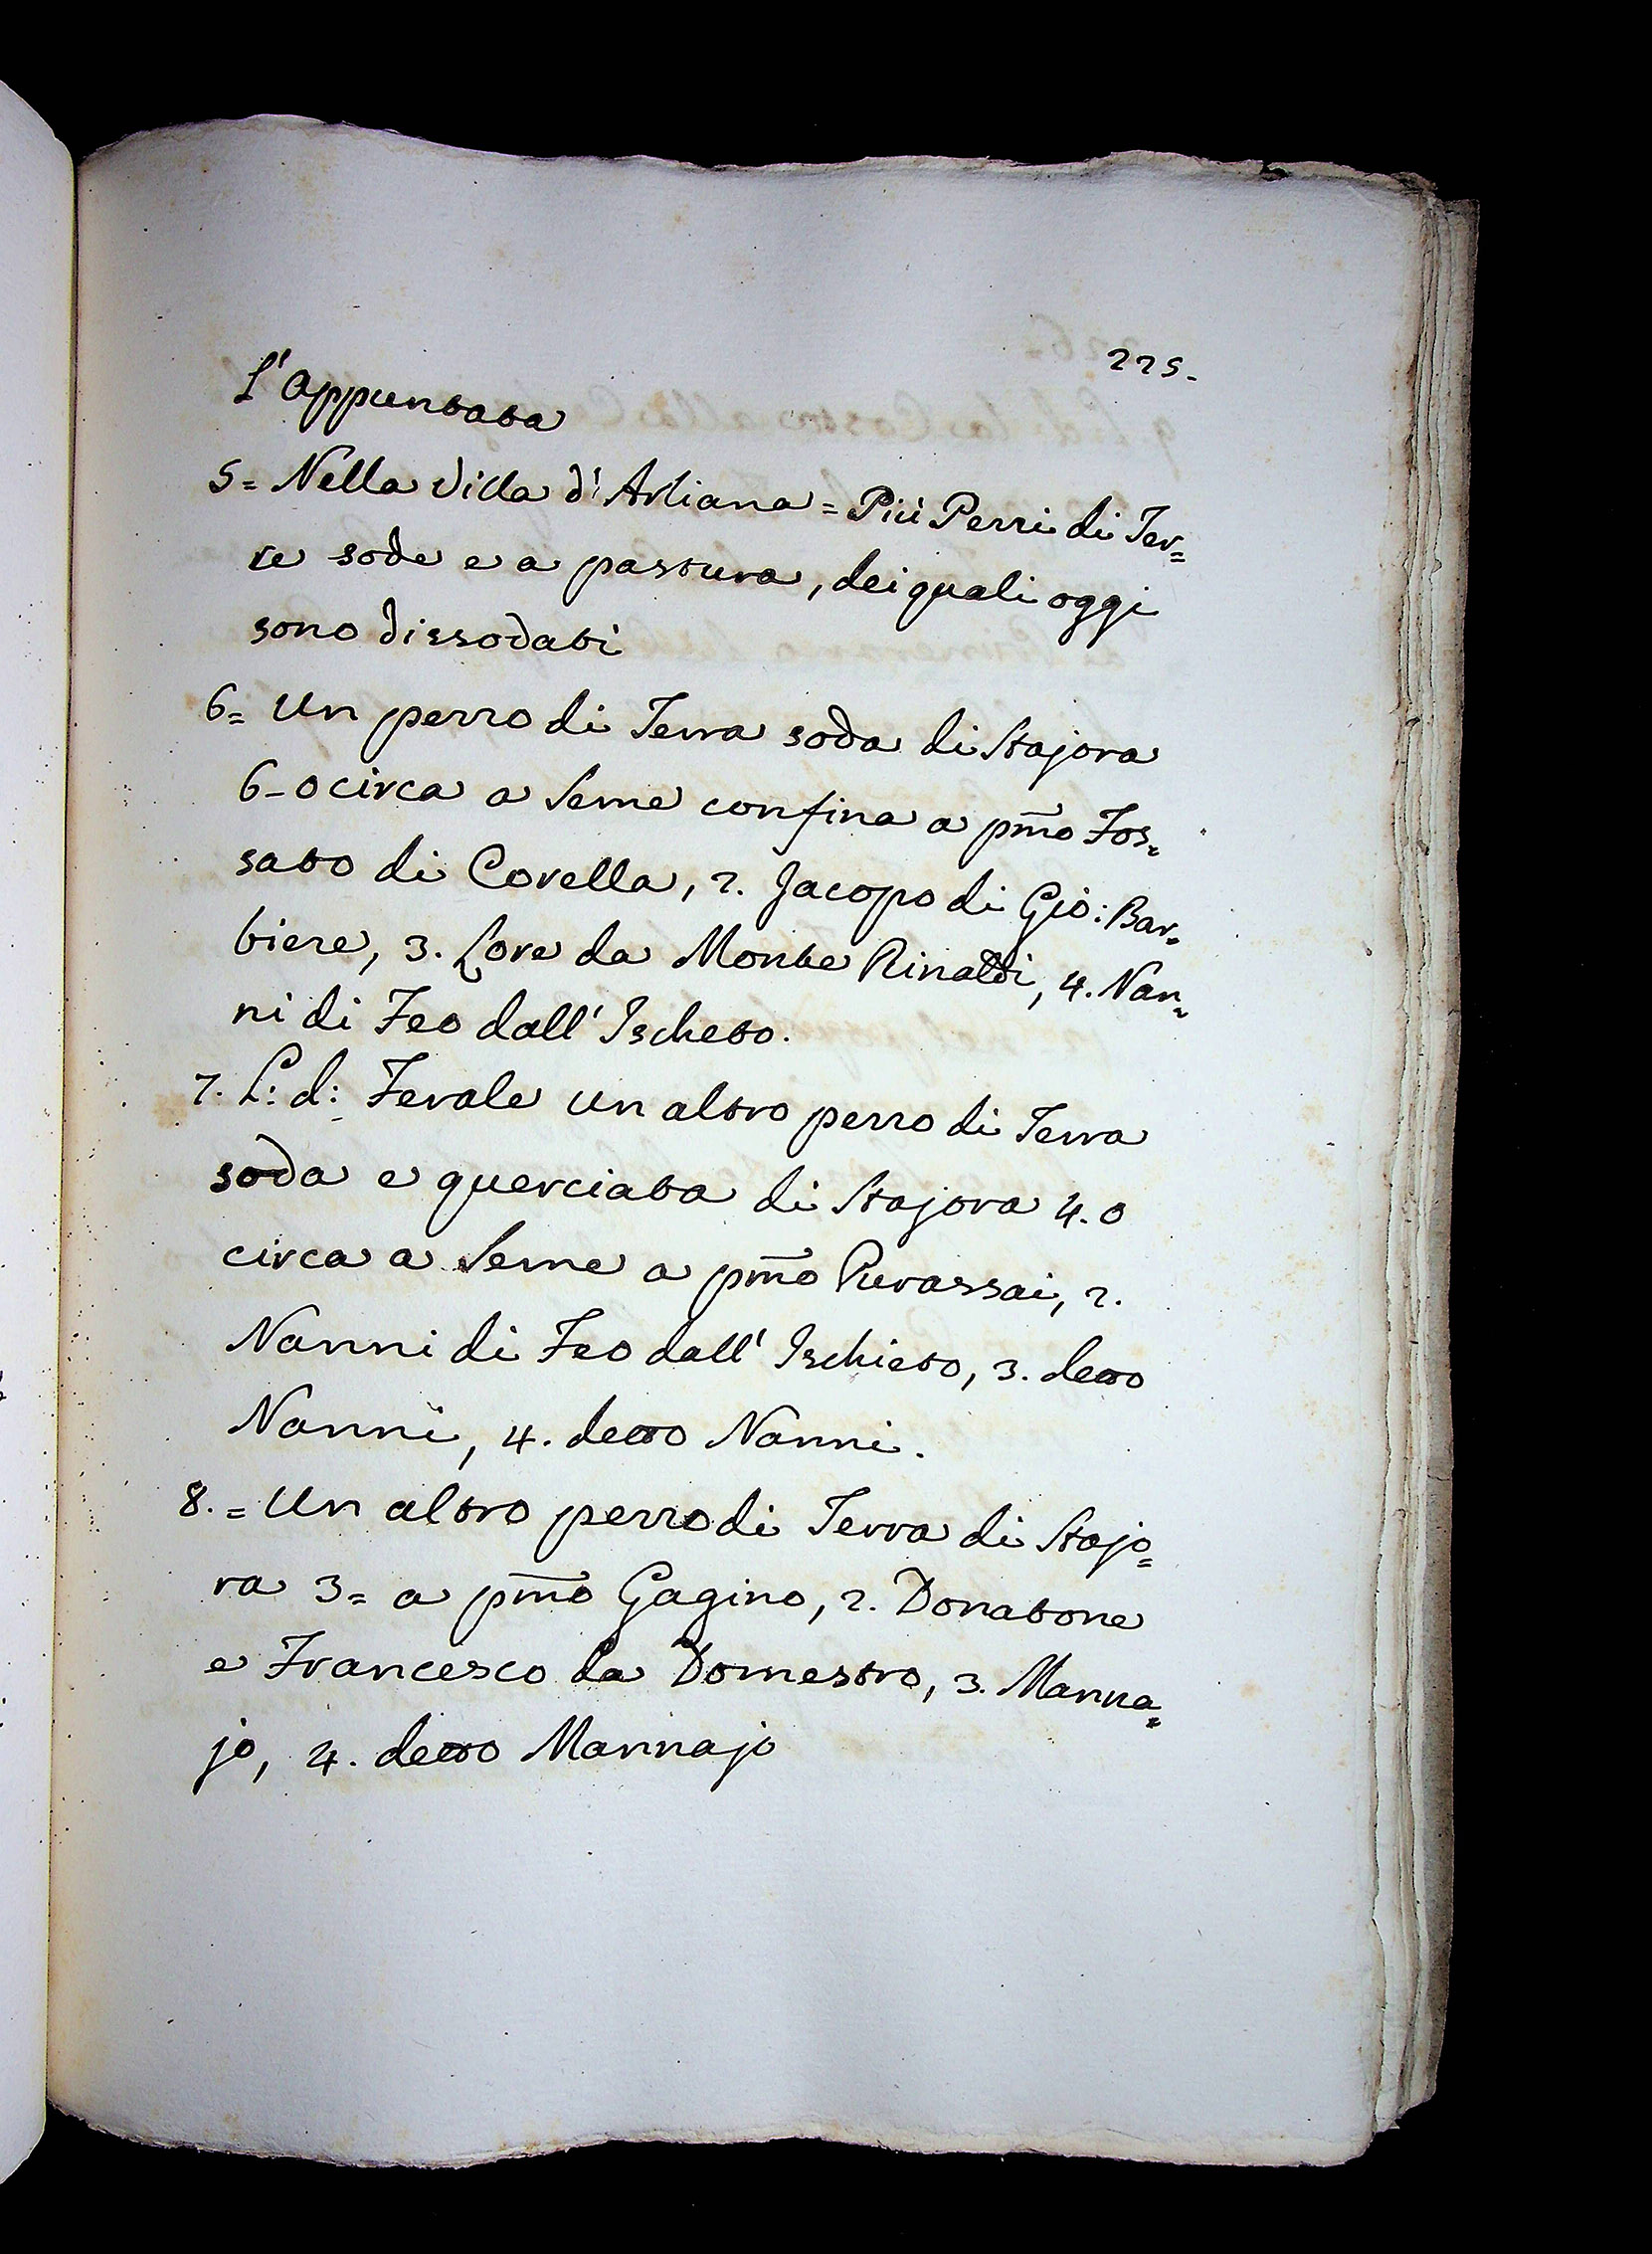 225.
L'appuntata
5= Nella Villa d'Arliana = Più Pezzi di Ter=
re sode e a pastura, dei quali oggi
sono dissodati
6= Un pezzo di Terra soda di Stajora
6-0 circa a Seme confina a pm̄o Fos=
sato di Corella, 2. Jacopo di Gio: Bar=
biere, 3. Lore da Monte Rinaldi, 4. Nan=
ni di Feo dall'Ischeto.
7. L: d: Ferale un altro pezzo di Terra
soda e querciata di Stajora 4.0
circa a Seme a pm̄o Purassai, 2.
Nanni di Feo dall'Ischieto, 3. detto
Nanni, 4. detto Nanni.
8. = Un altro pezzo di Terra di Stajo=
ra 3= a pm̄o Gagino, 2. Donatone
e Francesco da Domestro, 3. Manna=
jo, 4. detto Mannajo